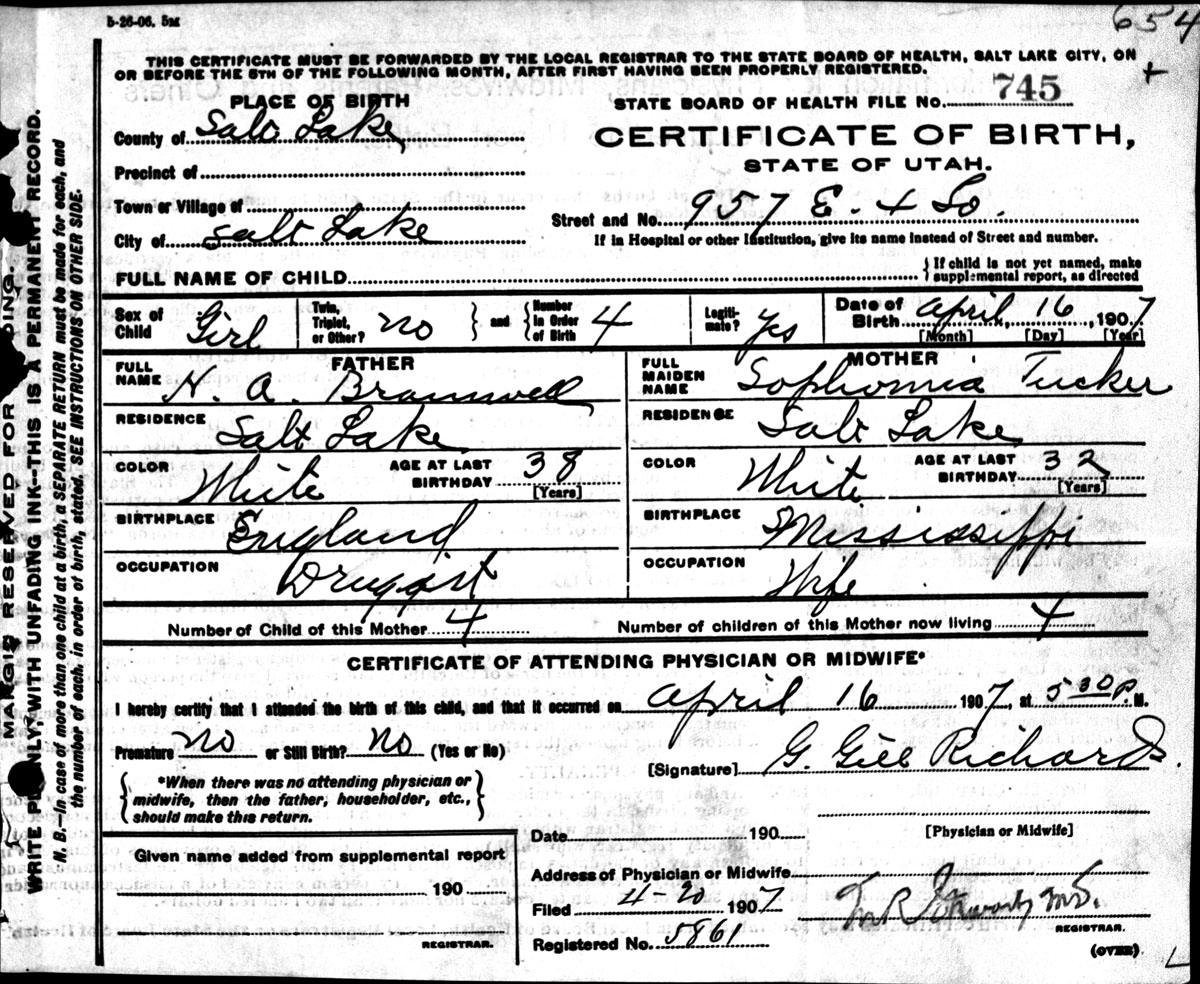 5-26-06. 5M
654
THIS CERTIFICATE MUST BE FORWARDED BY THE LOCAL REGISTRAR TO THE STATE BOARD OF HEALTH, SALT LAKE CITY, ON
OR BEFORE THE 5TH OF THE FOLLOWING MONTH, AFTER FIRST HAVING BEEN PROPERLY REGISTERED.
+
PLACE OF BIRTH
STATE BOARD OF HEALTH FILE No. 745
County of Salt Lake
CERTIFICATE OF BIRTH,
STATE OF UTAH.
Precinct of
Town or Village of
Street and No. 957 E. 4 So.
City of Salt Lake
If in Hospital or other Institution, give its name instead of Street and number.
FULL NAME OF CHILD
{ If child is not yet named, make
supplemental report, as directed
Sex of Child Girl
Twin, Triplet, or Other? no
} and {
Number in Order of Birth 4
Legiti-mate? Yes
Date of Birth April 16, 1907
[Month] [Day] [Year]
FATHER
MOTHER
FULL NAME H. A. Bramwell
FULL MAIDEN NAME Sophornia Tucker
RESIDENCE Salt Lake
RESIDENCE Salt Lake
COLOR White
AGE AT LAST BIRTHDAY 38 [Years]
COLOR White
AGE AT LAST BIRTHDAY 32 [Years]
BIRTHPLACE England
BIRTHPLACE Mississippi
OCCUPATION Druggist
OCCUPATION Wife
Number of Child of this Mother 4
Number of children of this Mother now living 4
CERTIFICATE OF ATTENDING PHYSICIAN OR MIDWIFE*
I hereby certify that I attended the birth of this child, and that it occurred on April 16 1907, at 5 30 P. M.
Premature no or Still Birth? no (Yes or No)
[Signature] G. Gill Richards.
{ *When there was no attending physician or
midwife, then the father, householder, etc.,
should make this return. }
Date 190
[Physician or Midwife]
Given name added from supplemental report
Address of Physician or Midwife
190
Filed 4-20 1907
M.D.
REGISTRAR.
REGISTRAR.
Registered No. 5861
(OVER)
MARGIN RESERVED FOR DING.
WRITE PLAINLY, WITH UNFADING INK--THIS IS A PERMANENT RECORD.
N. B.—In case of more than one child at a birth, a SEPARATE RETURN must be made for each, and
the number of each, in order of birth, stated. SEE INSTRUCTIONS ON OTHER SIDE.